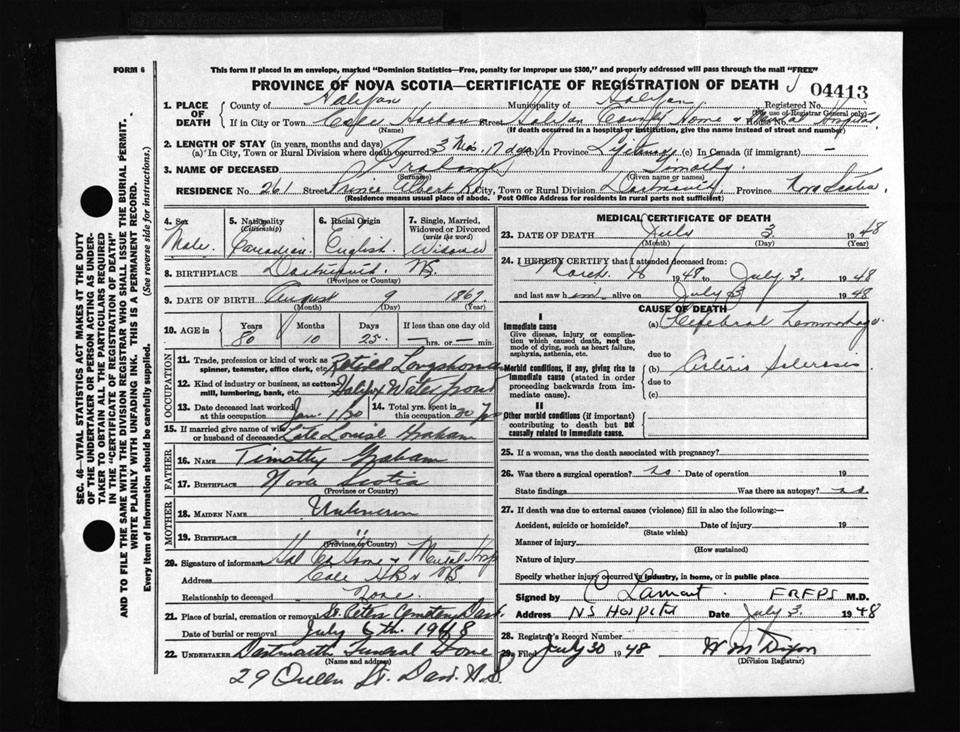 FORM 6
This form if placed in an envelope, marked "Dominion Statistics—Free, penalty for improper use $300," and properly addressed will pass through the mail "FREE"
PROVINCE OF NOVA SCOTIA—CERTIFICATE OF REGISTRATION OF DEATH
04413
1. PLACE OF DEATH
County of Halifax Municipality of Halifax Registered No.
(For use of Registrar General only)
If in City or Town Cole Harbour Street Halifax County Home & Mental Hospital House No.
(Name) (If death occurred in a hospital or institution, give the name instead of street and number)
2. LENGTH OF STAY (in years, months and days)
(a) In City, Town or Rural Division where death occurred 3 Mos. 17 days (b) In Province Lifetime (c) In Canada (if immigrant) —
3. NAME OF DECEASED Graham Timothy
(Surname) (Given name or names)
RESIDENCE No. 261 Street Prince Albert Rd City, Town or Rural Division Dartmouth Province Nova Scotia
(Residence means usual place of abode. Post Office Address for residents in rural parts not sufficient)
4. Sex Male
5. Nationality (Citizenship) Canadian
6. Racial Origin English
7. Single, Married, Widowed or Divorced (write the word) Widower
8. BIRTHPLACE Dartmouth NS.
(Province or Country)
9. DATE OF BIRTH August 9 1867
(Month) (Day) (Year)
10. AGE in Years 80 Months 10 Days 25 If less than one day — hrs. or — min.
OCCUPATION
11. Trade, profession or kind of work as spinner, teamster, office clerk, etc. Retired Longshoreman
12. Kind of industry or business, as cotton mill, lumbering, bank, etc. Halifax Waterfront
13. Date deceased last worked at this occupation Jan. 1/30
14. Total yrs. spent in this occupation
15. If married give name of wife or husband of deceased Late Louise Graham
FATHER
16. NAME Timothy Graham
17. BIRTHPLACE Nova Scotia
(Province or Country)
MOTHER
18. MAIDEN NAME Unknown
19. BIRTHPLACE "
(Province or Country)
20. Signature of informant Hal Co Home & Mental Hosp
Address Cole Hbr NS
Relationship to deceased None.
21. Place of burial, cremation or removal St. Peters Cemetery Dart.
Date of burial or removal July 6th. 1948
22. UNDERTAKER Dartmouth Funeral Home
(Name and address)
29 Queen St. Dart. N.S.
MEDICAL CERTIFICATE OF DEATH
23. DATE OF DEATH July 3 1948
(Month) (Day) (Year)
24. I HEREBY CERTIFY that I attended deceased from:
March 16 1948 to July 3 1948
and last saw him alive on July 3 1948
CAUSE OF DEATH
I
Immediate cause
Give disease, injury or complication which caused death, not the mode of dying, such as heart failure, asphyxia, asthenia, etc.
(a) Cerebral Hemmorhage
due to
Morbid conditions, if any, giving rise to immediate cause (stated in order proceeding backwards from immediate cause).
(b) Arterio Sclerosis
due to
(c)
II
Other morbid conditions (if important) contributing to death but not causally related to immediate cause.
25. If a woman, was the death associated with pregnancy?
26. Was there a surgical operation? no Date of operation 19
State findings Was there an autopsy? no.
27. If death was due to external causes (violence) fill in also the following:—
Accident, suicide or homicide? Date of injury 19
(State which)
Manner of injury
(How sustained)
Nature of injury
Specify whether injury occurred in industry, in home, or in public place
Signed by C Lamont FRFPS M.D.
Address NS Hospital Date July 3. 1948
28. Registrar's Record Number
29. Filed July 30 1948 W M Dixon
(Division Registrar)
SEC. 46—VITAL STATISTICS ACT MAKES IT THE DUTY
OF THE UNDERTAKER OR PERSON ACTING AS UNDERTAKER TO OBTAIN ALL THE PARTICULARS REQUIRED
IN THE "CERTIFICATE OF REGISTRATION OF DEATH"
AND TO FILE THE SAME WITH THE DIVISION REGISTRAR WHO SHALL ISSUE THE BURIAL PERMIT.
WRITE PLAINLY WITH UNFADING INK. THIS IS A PERMANENT RECORD.
Every item of information should be carefully supplied. (See reverse side for instructions.)